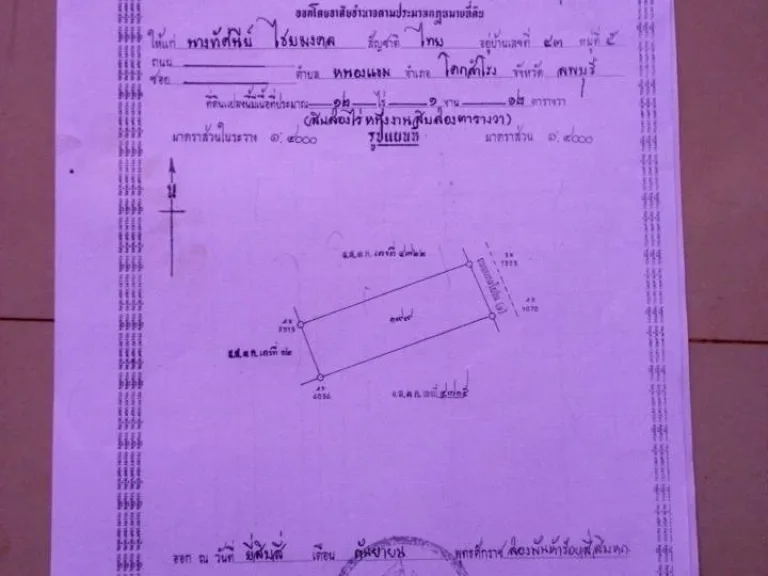 ออกโดยอาศัยอำนาจตามประมวลกฎหมายที่ดิน
ให้แก่ นางทัศนีย์ ไชยมงคล สัญชาติ ไทย อยู่บ้านเลขที่ ๔๓ หมู่ที่ ๕
ถนน
ซอย ตำบล หนองแขม อำเภอ โคกสำโรง จังหวัด ลพบุรี
ที่ดินแปลงนี้มีเนื้อที่ประมาณ ๑๒ ไร่ ๑ งาน ๑๒ ตารางวา
(สิบสองไร่หนึ่งงานสิบสองตารางวา)
มาตราส่วนในระวาง ๑:๔๐๐๐ รูปแผนที่ มาตราส่วน ๑:๔๐๐๐
น
น.ส.๓ ก. เลขที่ ๔๗๒๒
๑๙๙
น.ส.๓ ก. เลขที่ ๗๒
น.ส.๓ ก. เลขที่ ๔๗๒๕
ออก ณ วันที่ ยี่สิบสี่ เดือน กันยายน พุทธศักราช สองพันห้าร้อยสี่สิบตก